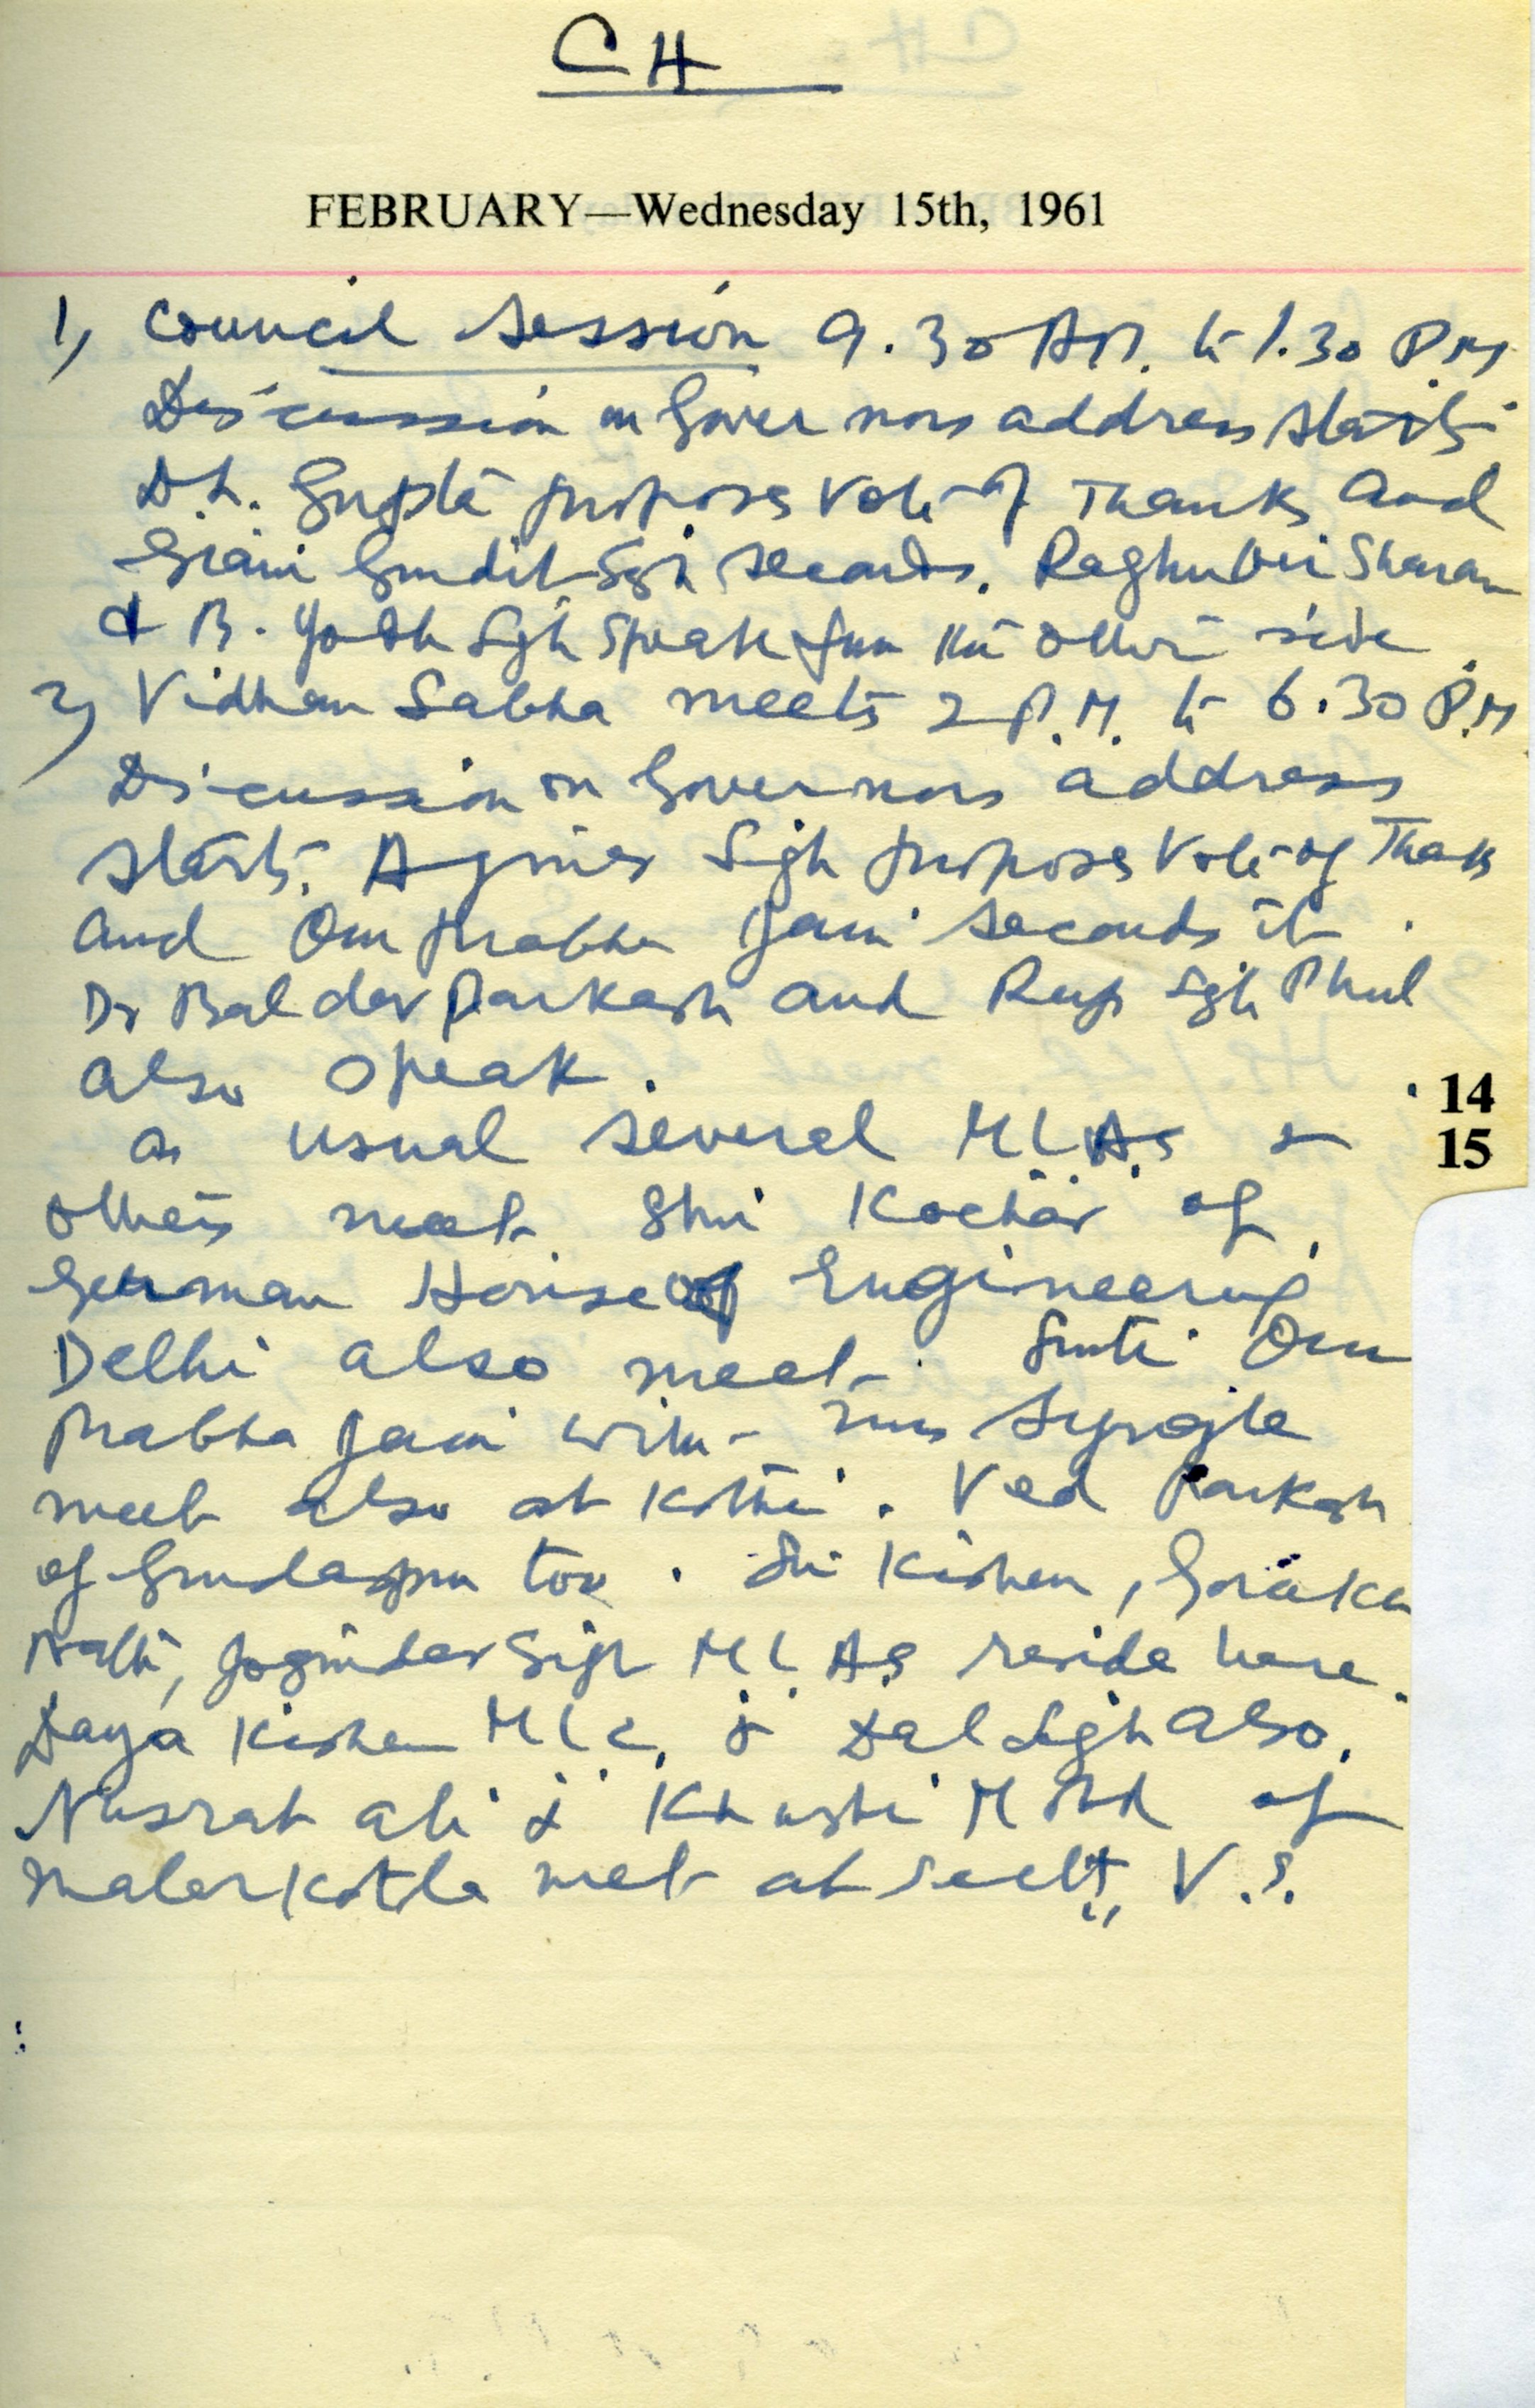 CH
FEBRUARY—Wednesday 15th, 1961
1) Council Session 9.30 AM. to 1.30 P.M
Discussion on Governors address starts.
D.L. Gupta proposes Vote of Thanks and
Giani Gurdit Sgh seconds. Raghubir Sharan
& B. Yodh Sgh speak from the other side.
2) Vidhan Sabha meets 2 P.M. to 6.30 P.M
Discussion on Governors address
starts. Ajmer Sigh proposes Vote of Thanks
and Om Prabha Jain seconds it.
Dr Baldev Parkash and Rup Sgh Phul
also speak.
as usual several M.L.As &
others meet. Shri Kochar of
German House of Engineering
Delhi also meet. Smti Om
Prabha Jain with Mrs
meet also at Kothi. Ved Parkash
of Gurdaspur too. Sri Kishen, Gorakh
Nath, Joginder Sigh M.L.As reside here.
Daya Kishen M.L.C. & Dal Sigh also.
Nusrat Ali & Khushi Mohd of
Malerkotla met at sectt, V.S.
14
15